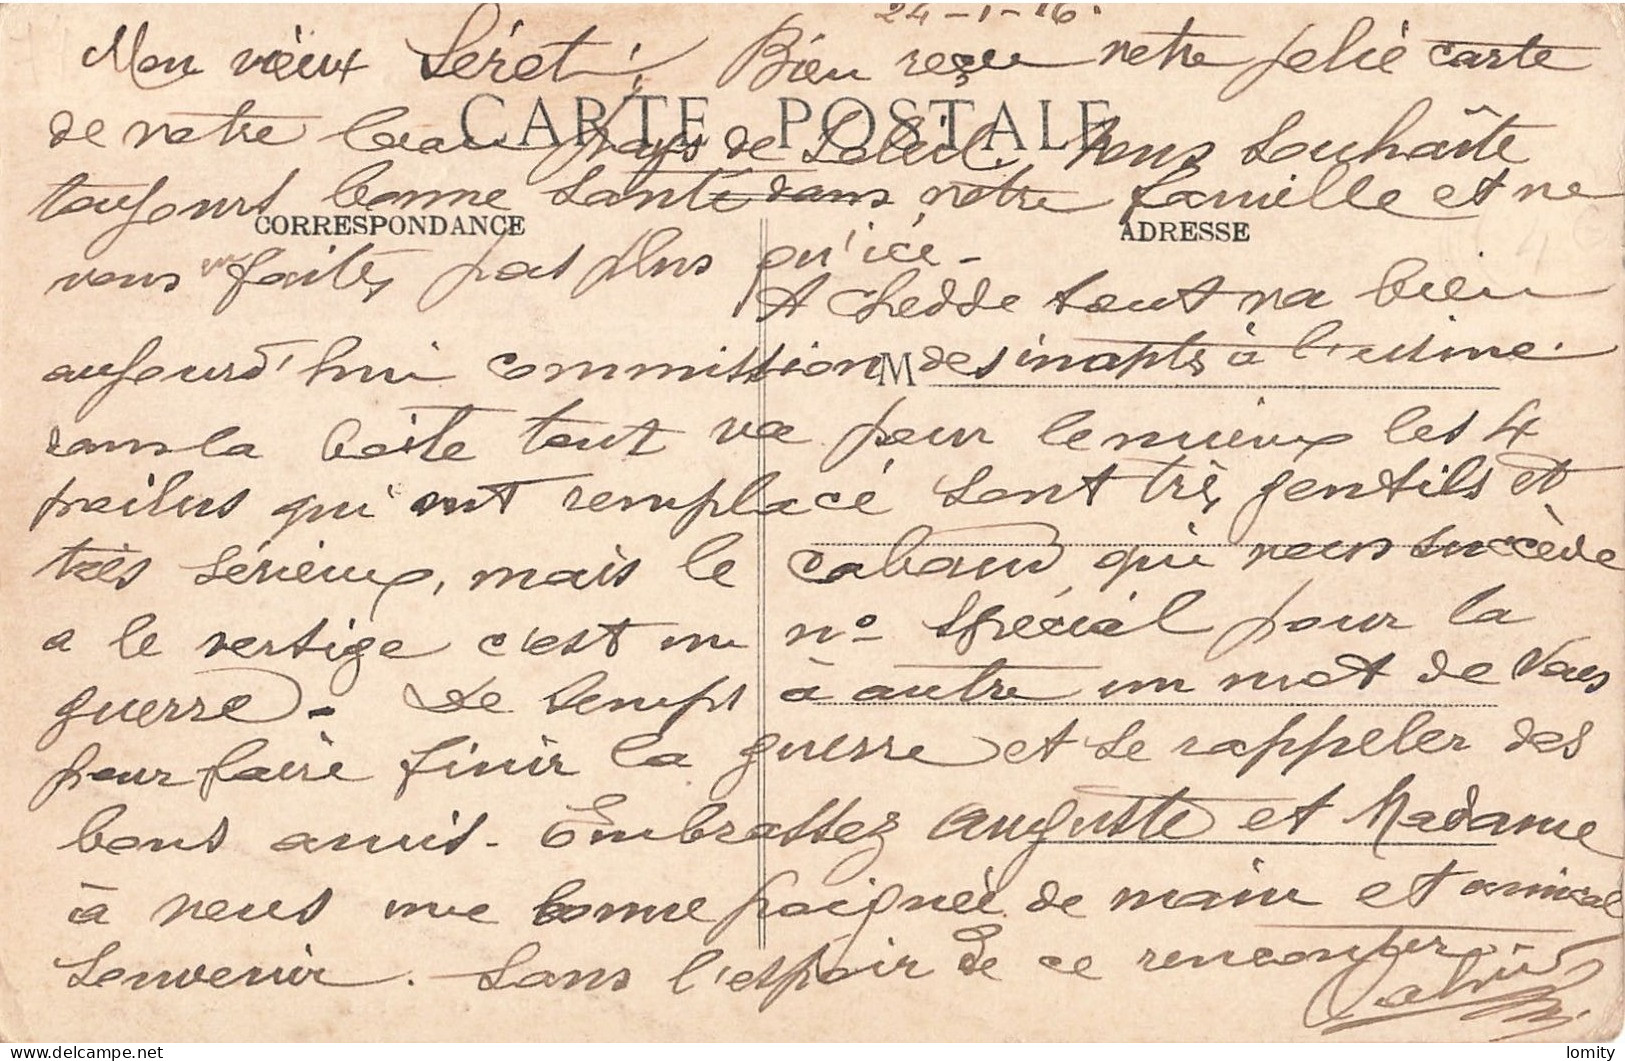 24-1-16.
Mon vieux Séret! Bien reçu votre jolie carte
CARTE POSTALE
de votre beau pays de Soleil. Vous souhaite
toujours bonne santé dans votre famille et ne
CORRESPONDANCE
ADRESSE
vous en faites pas plus qu'ici -
A Chedde tout va bien
aujourd'hui commission des inaptes à l'usine.
M
dans la boite tout va pour le mieux les 4
poilus qui ont remplacé sont très gentils et
très sérieux, mais le cabaud qui vous succède
a le vertige c'est un no spécial pour la
guerre - De temps à autre un mot de Vous
pour faire finir la guerre et se rappeler des
bons amis - Embrassez Auguste et Madame
à vous une bonne poignée de main et amical
Souvenir. - Dans l'espoir de se rencontrer
lomity
© delcampe.net